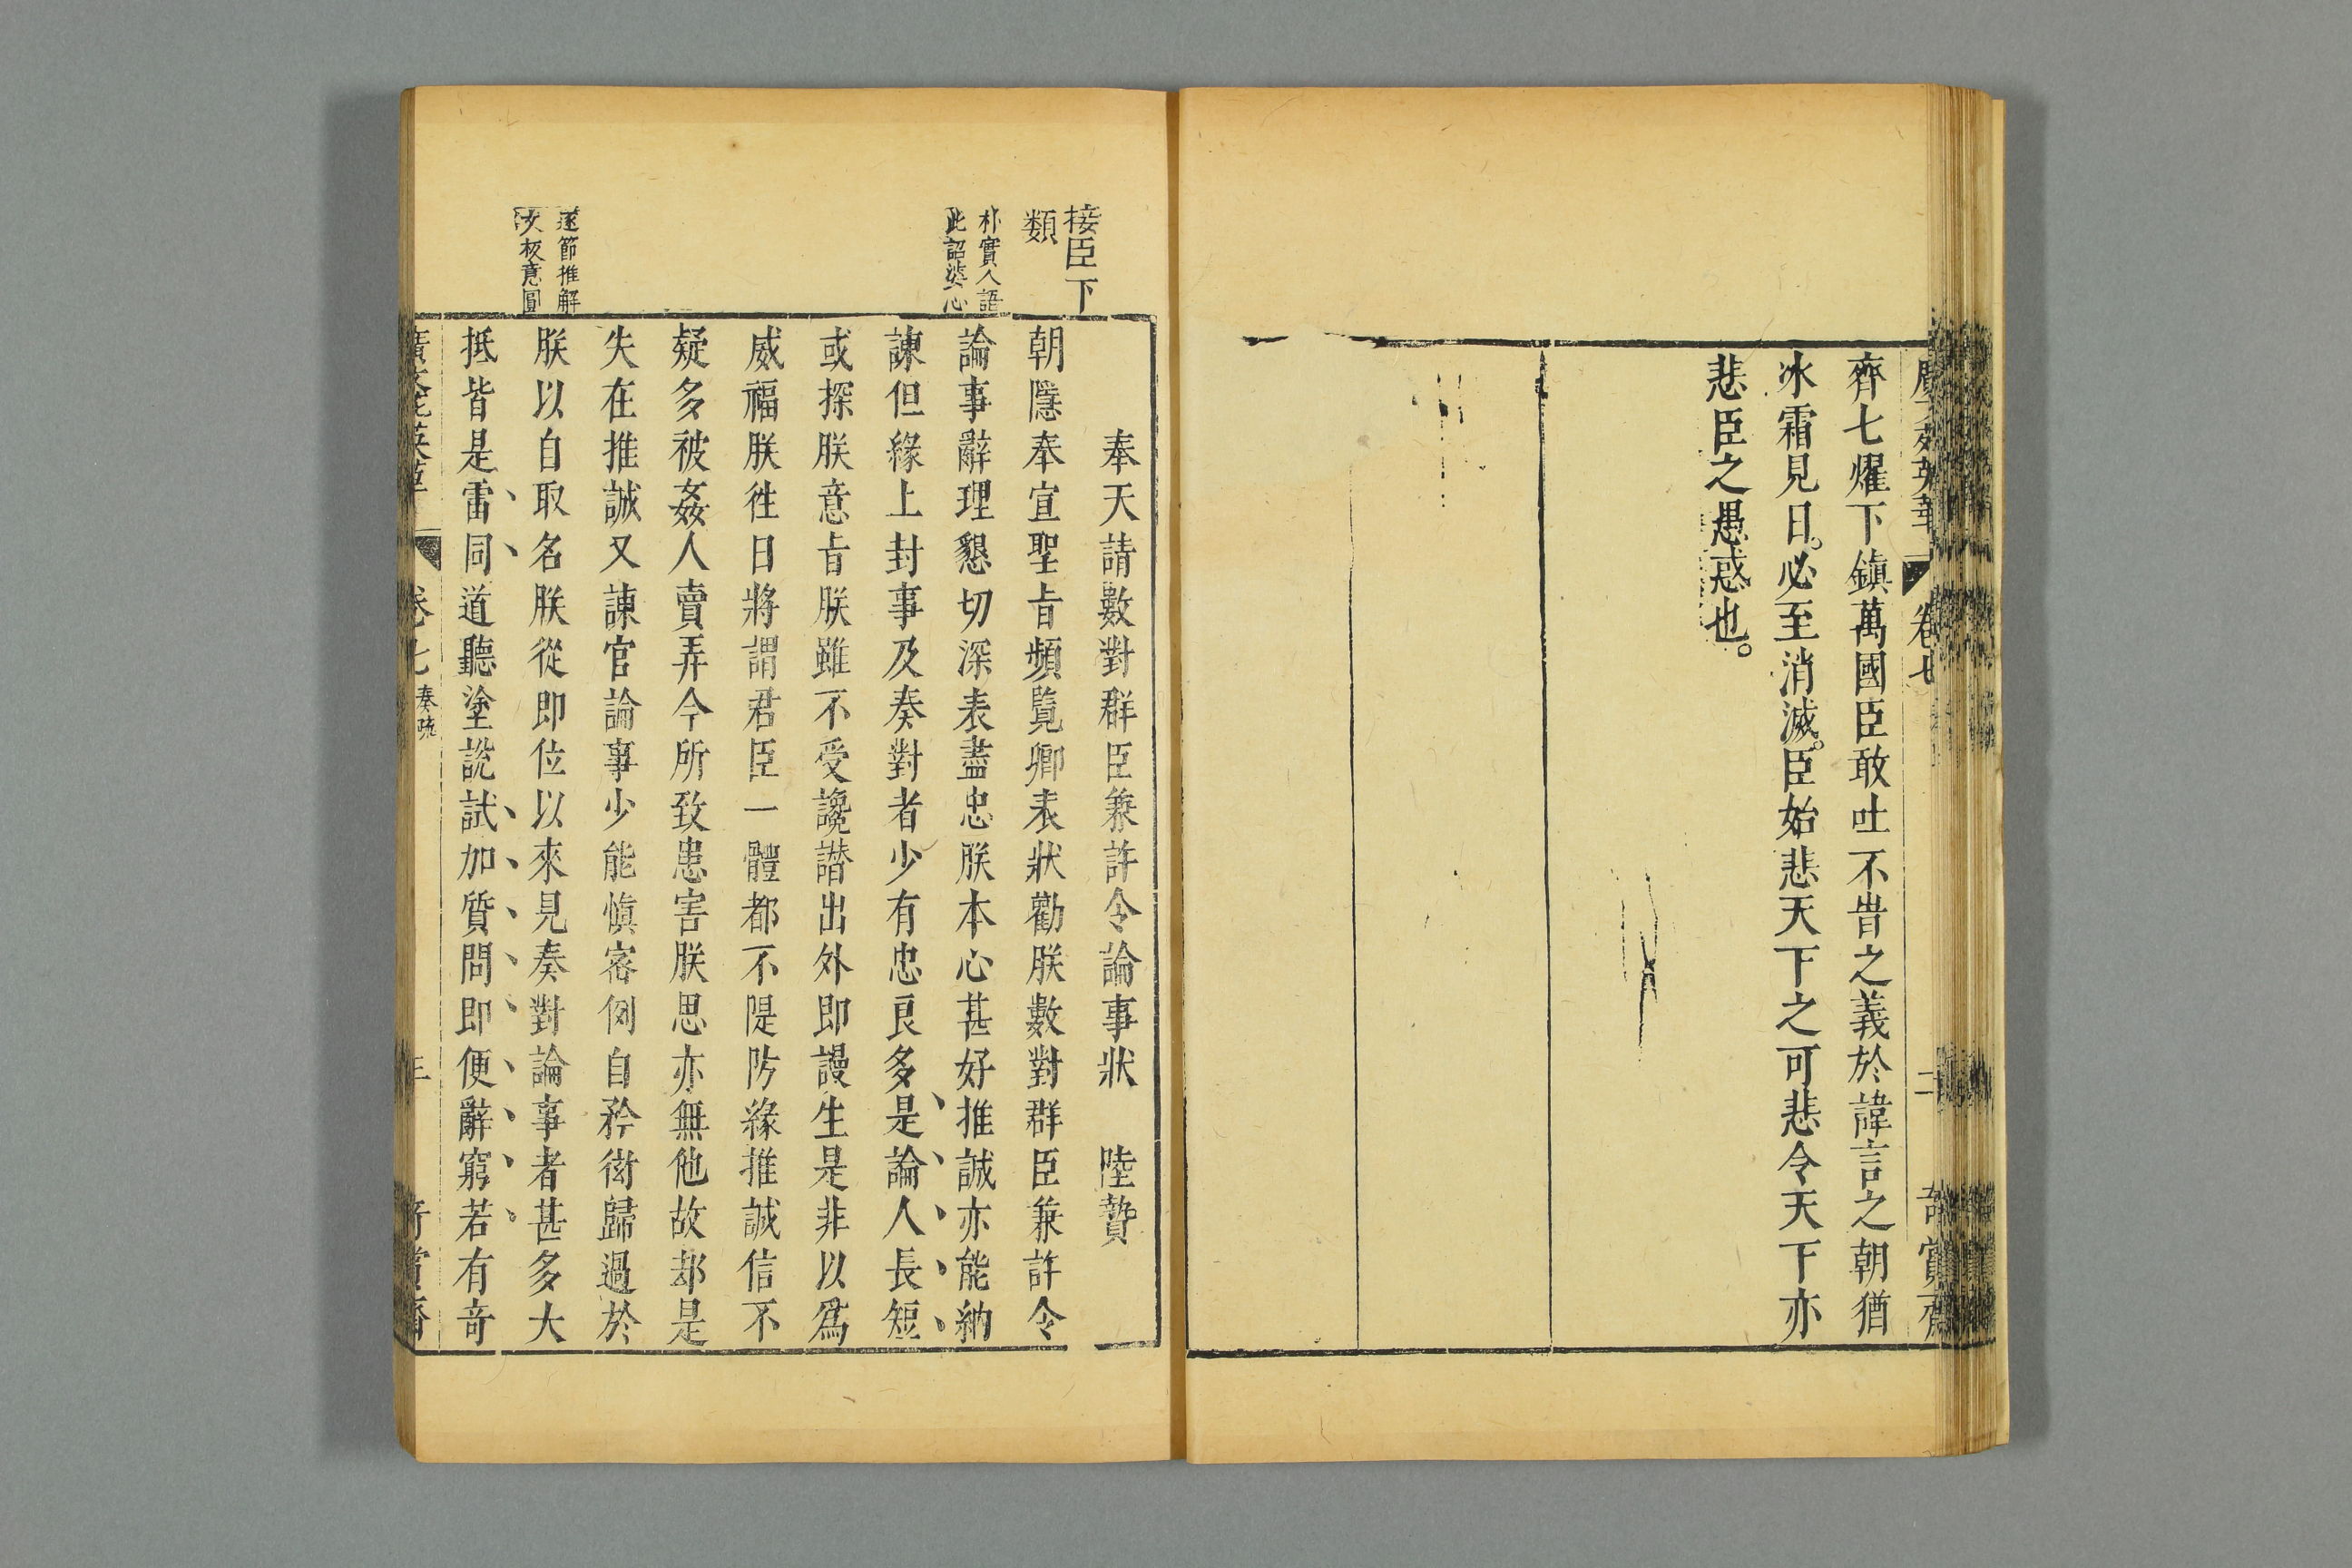 卷七
二
賞齋
齊七燿下鎮萬國臣敢吐不昔之義於諱言之朝猶
冰霜見日。必至消滅。臣始悲天下之可悲令天下亦
悲臣之愚惑也。
接臣下
類
朴實人語
此詔婆心
逐節推解
文板意圓
奉天請數對群臣兼許令論事狀 陸贄
朝隱奉宣聖旨頻覽卿表狀勸朕數對群臣兼許令
論事辭理懇切深表盡忠朕本心甚好推誠亦能納
諫但緣上封事及奏對者少有忠良多是論人長短
或探朕意旨朕雖不受讒譖出外即謾生是非以爲
威福朕徃日將謂君臣一體都不隄防緣推誠信不
疑多被姦人賣弄今所致患害朕思亦無他故却是
失在推誠又諫官論事少能慎密例自矜衒歸過於
朕以自取名朕從即位以來見奏對論事者甚多大
抵皆是雷同道聽塗說試加質問即便辭窮若有奇
卷七 奏疏